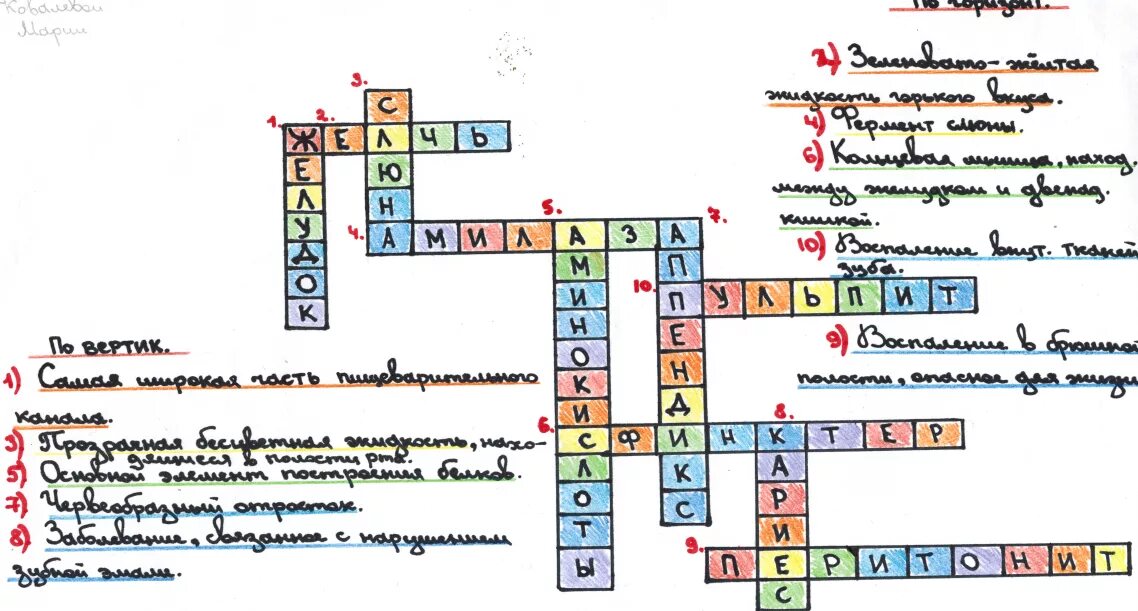 Ковалевой
Марии
По горизонт.
2) Зеленовато-жёлтая
жидкость горького вкуса.
4) Фермент слюны.
6) Кольцевая мышца, наход.
между желудком и двенад.
кишкой.
10) Воспаление внут. тканей
зуба.
9) Воспаление в брюшной
полости, опасное для жизни
По вертик.
1) Самая широкая часть пищеварительного
канала.
3) Прозрачная бесцветная жидкость, нахо-
дящиеся в полости рта.
5) Основной элемент построения белков.
7) Червеобразный отросток.
8) Заболевание, связанное с нарушением
зубной эмали.
1. ЖЕЛУДОК
2. ЖЕЛЧЬ
3. СЛЮНА
4. АМИЛАЗА
5. АМИНОКИСЛОТЫ
6. СФИНКТЕР
7. АППЕНДИКС
8. КАРИЕС
9. ПЕРИТОНИТ
10. ПУЛЬПИТ